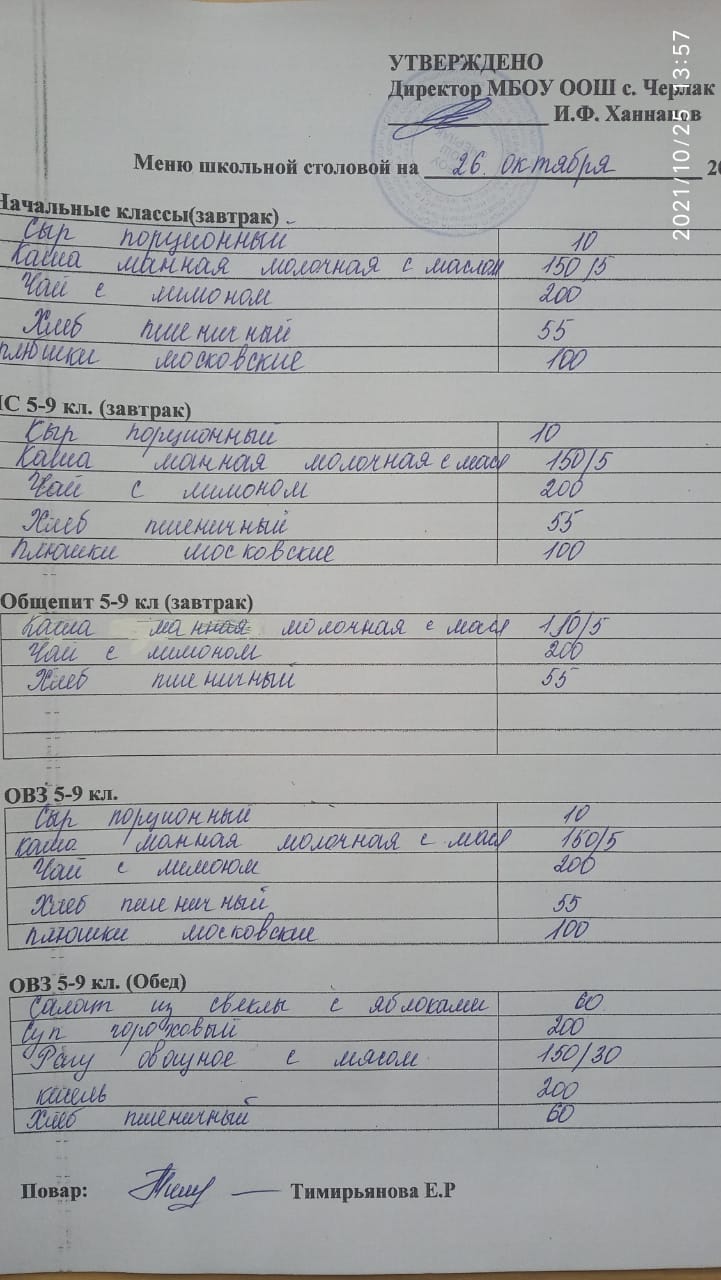 УТВЕРЖДЕНО
Директор МБОУ ООШ с. Черлак
И.Ф. Ханнанов
2021/10/25 13:57
Меню школьной столовой на 26. октября 20
Начальные классы(завтрак)
Сыр порционный 10
Каша манная молочная с маслом 150/5
Чай с лимоном 200
Хлеб пшеничный 55
плюшки московские 100
ПС 5-9 кл. (завтрак)
Сыр порционный 10
Каша манная молочная с масл 150/5
Чай с лимоном 200
Хлеб пшеничный 55
плюшки московские 100
Общепит 5-9 кл (завтрак)
Каша манная молочная с масл 150/5
Чай с лимоном 200
Хлеб пшеничный 55
ОВЗ 5-9 кл.
Сыр порционный 10
каша манная молочная с масл 150/5
Чай с лимоюм 200
Хлеб пшеничный 55
плюшки московские 100
ОВЗ 5-9 кл. (Обед)
Салат из свеклы с яблоками 60
Суп гороховый 200
Рагу овощное с мясом 150/30
кисель 200
Хлеб пшеничный 60
Повар: Тимирьянова Е.Р